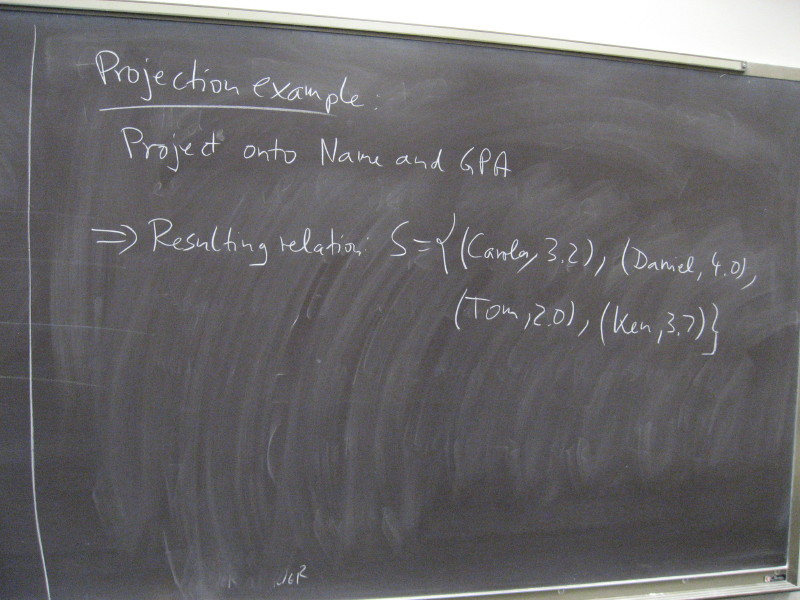 Projection example:
Project onto Name and GPA
⇒ Resulting relation: S = {(Carola, 3.2), (Daniel, 4.0),
(Tom, 2.0), (Ken, 3.7)}